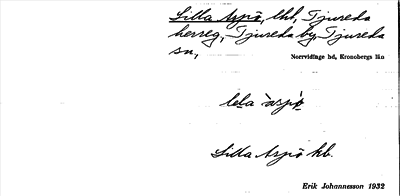 Lilla Aspö, lht, Tjureda
herreg, Tjureda by, Tjureda
sn,
Norrvidinge hd, Kronobergs län
lɩla àspö̀
Lilla Aspö kb.
Erik Johannesson 1932